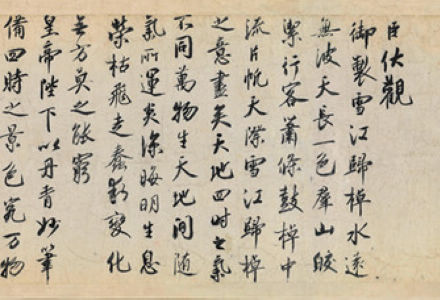 臣伏觀
御製雪江歸棹水遠
無波天長一色羣山皎
潔行客蕭條鼓棹中
流片帆天際雪江歸棹
之意盡矣天地四時之氣
不同萬物生天地間隨
氣所運炎涼晦明生息
榮枯飛走蠢動變化
無方莫之能窮
皇帝陛下以丹青妙筆
備四時之景色究万物